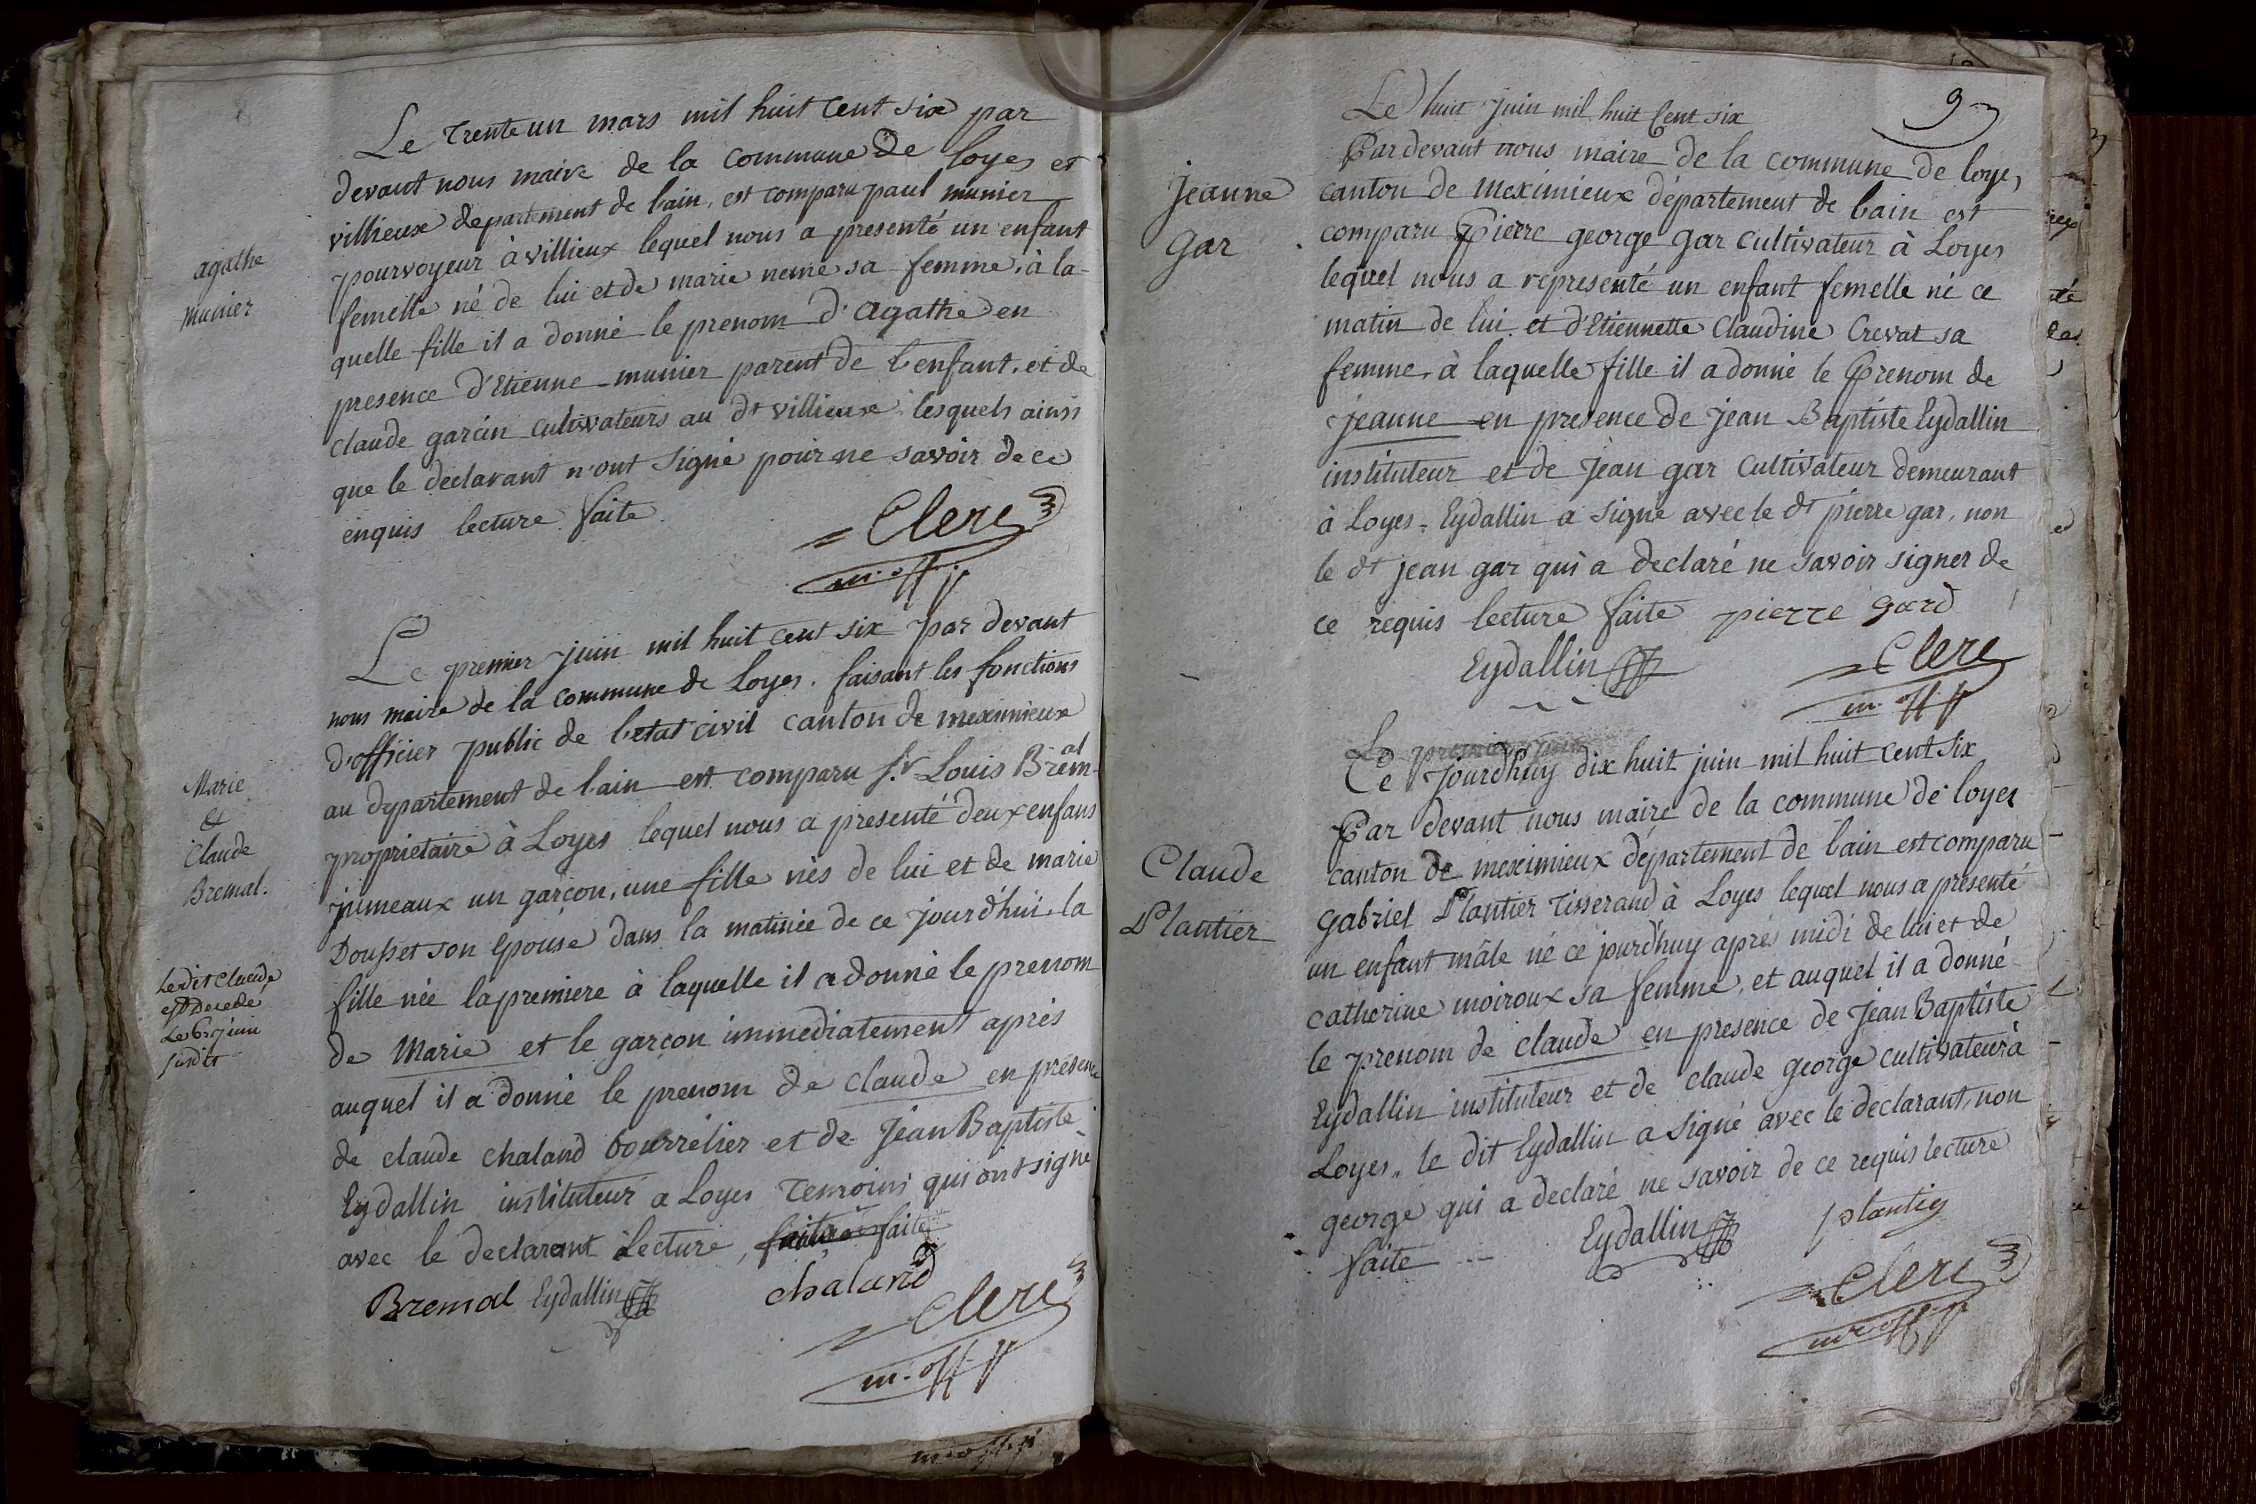 Le trente un mars mil huit cent six par
devant nous maire de la commune de loyes et
villieux departement de l'ain, est comparu paul munier
pourvoyeur à villieux lequel nous a presenté un enfant
agathe
munier
femelle né de lui et de marie neme sa femme, à la-
quelle fille il a donné le prenom d'agathe en
presence d'Etienne munier parent de l'enfant, et de
claude garcin cultivateurs au dt villieux lesquels ainsi
que le declarant n'ont signé pour ne savoir de ce
enquis lecture faite
Clerc
m. off. p.
Le premier juin mil huit cent six par devant
nous maire de la commune de Loyes. faisant les fonctions
d'officier public de l'etat civil canton de meximieux
au departement de l'ain est comparu sr. Louis Bremal
Marie
et
Claude
Bremal.
proprietaire à Loyes lequel nous a presenté deux enfans
jumeaux un garçon, une fille nés de lui et de marie
Dousset son epouse dans la matinée de ce jourd'hui, la
fille née la premiere à laquelle il a donné le prenom
Le dit Claude
est Decede
Le 6 juin
susdit
de Marie et le garçon immediatement après
auquel il a donné le prenom de claude en presence
de claude chaland bourrelier et de Jean Baptiste
Eydallin instituteur a Loyes temoins qui ont signé
avec le declarant lecture, faite
Bremal Eydallin chaland
Clerc
m. off. p.
m. off. p.
9
Le huit juin mil huit Cent six
Par devant nous maire de la commune de loyes
Jeanne
Gar
canton de meximieux département de l'ain est
comparu Pierre george gar cultivateur à Loyes
lequel nous a representé un enfant femelle né ce
matin de lui et d'Etiennette Claudine Crevat sa
femme, à laquelle fille il a donné le Prenom de
jeanne en presence de jean Baptiste Eydallin
instituteur et de jean gar cultivateur demeurant
à Loyes. Eydallin a signé avec le dt pierre gar, non
le dt jean gar qui a declaré ne savoir signer de
ce requis lecture faite pierre gard
Eydallin Clerc
m. off. p.
Le premier juin
Ce jourd'huy dix huit juin mil huit cent six
Par devant nous maire de la commune de loyes
Claude
Plantier
canton de meximieux département de l'ain est comparu
gabriel Plantier tisserand à Loyes lequel nous a présenté
un enfant mâle né ce jourd'huy après midi de lui et de
catherine moiroux sa femme, et auquel il a donné
le prenom de claude en presence de Jean Baptiste
Eydallin instituteur et de claude george cultivateur à
Loyes, le dit Eydallin a signé avec le declarant, non
george qui a declaré ne savoir de ce requis lecture
faite Eydallin plantier
Clerc
m. off. p.